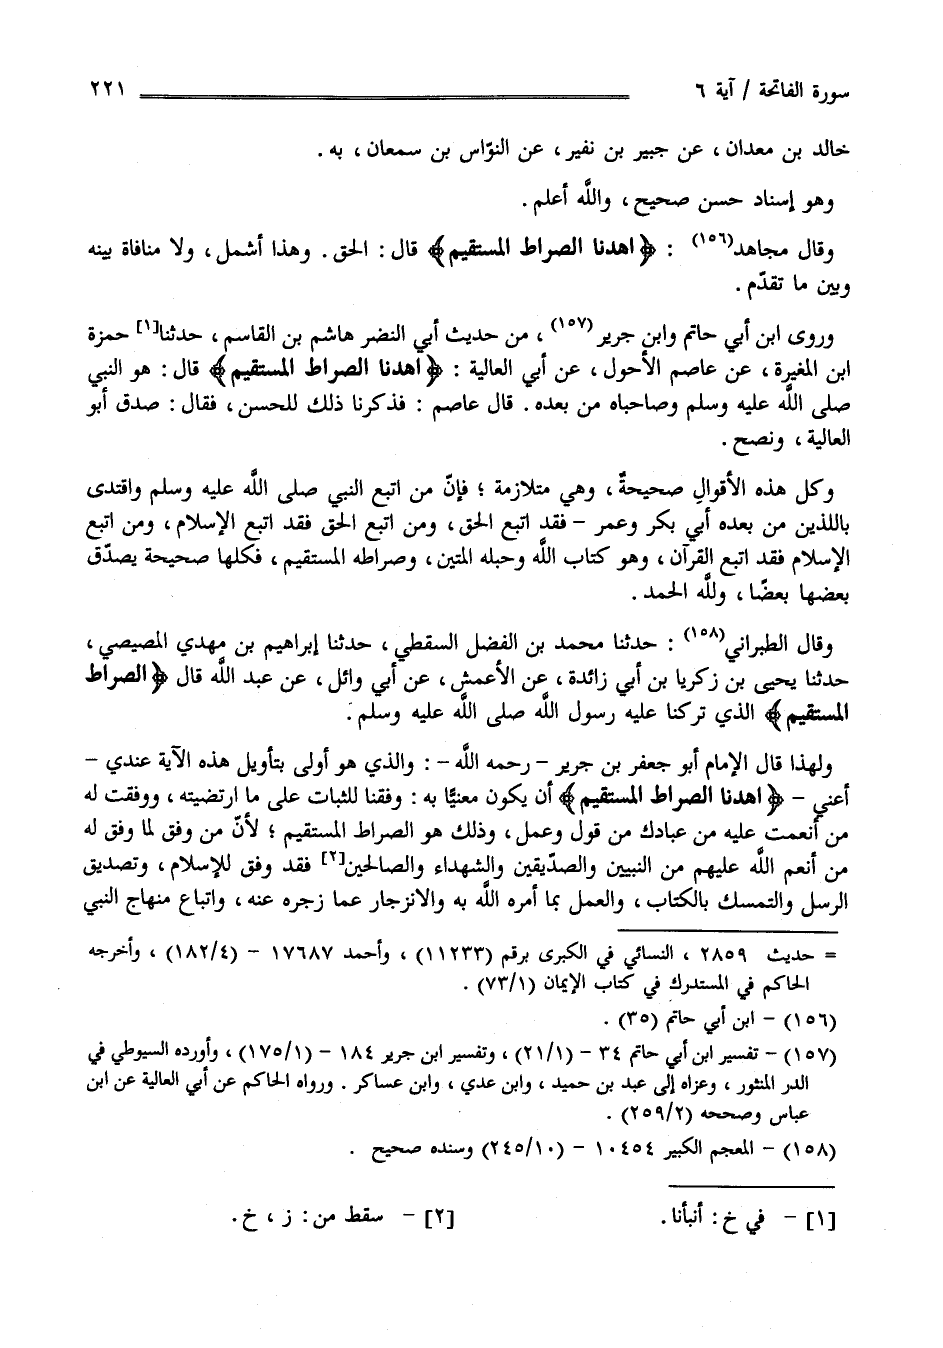 سورة الفاتحة / آية ٦ ٢٢١
خالد بن معدان ، عن جبير بن نفير ، عن النوّاس بن سمعان ، به .
وهو إسناد حسن صحيح ، واللَّه أعلم .
وقال مجاهد(١٥٦) : ﴿ اهدنا الصراط المستقيم ﴾ قال : الحق . وهذا أشمل ، ولا منافاة بينه
وبين ما تقدّم .
وروى ابن أبي حاتم وابن جرير (١٥٧) ، من حديث أبي النضر هاشم بن القاسم ، حدثنا[١] حمزة
ابن المغيرة ، عن عاصم الأحول ، عن أبي العالية : ﴿ اهدنا الصراط المستقيم ﴾ قال : هو النبي
صلى اللَّه عليه وسلم وصاحباه من بعده . قال عاصم : فذكرنا ذلك للحسن ، فقال : صدق أبو
العالية ، ونصح .
وكل هذه الأقوالِ صحيحةٌ ، وهي متلازمة ؛ فإنّ من اتبع النبي صلى اللَّه عليه وسلم واقتدى
باللذين من بعده أبي بكر وعمر – فقد اتبع الحق ، ومن اتبع الحق فقد اتبع الإسلام ، ومن اتبع
الإسلام فقد اتبع القرآن ، وهو كتاب اللَّه وحبله المتين ، وصراطه المستقيم ، فكلها صحيحة يصدّق
بعضها بعضًا ، وللَّه الحمد .
وقال الطبراني(١٥٨) : حدثنا محمد بن الفضل السقطي ، حدثنا إبراهيم بن مهدي المصيصي ،
حدثنا يحيى بن زكريا بن أبي زائدة ، عن الأعمش ، عن أبي وائل ، عن عبد اللَّه قال ﴿ الصراط
المستقيم ﴾ الذي تركنا عليه رسول اللَّه صلى اللَّه عليه وسلم .
ولهذا قال الإمام أبو جعفر بن جرير – رحمه اللَّه – : والذي هو أولى بتأويل هذه الآية عندي –
أعني – ﴿ اهدنا الصراط المستقيم ﴾ أن يكون معنيًّا به : وفقنا للثبات على ما ارتضيته ، ووفقت له
من أنعمت عليه من عبادك من قول وعمل ، وذلك هو الصراط المستقيم ؛ لأنّ من وفق لما وفق له
من أنعم اللَّه عليهم من النبيين والصدّيقين والشهداء والصالحين[٢] فقد وفق للإسلام ، وتصديق
الرسل والتمسك بالكتاب ، والعمل بما أمره اللَّه به والانزجار عما زجره عنه ، واتباع منهاج النبي
= حديث ٢٨٥٩ ، النسائي في الكبرى برقم (١١٢٣٣) ، وأحمد ١٧٦٨٧ – (١٨٢/٤) ، وأخرجه
الحاكم في المستدرك في كتاب الإيمان (٧٣/١) .
(١٥٦) – ابن أبي حاتم (٣٥) .
(١٥٧) – تفسير ابن أبي حاتم ٣٤ – (٢١/١) ، وتفسير ابن جرير ١٨٤ – (١٧٥/١) ، وأورده السيوطي في
الدر المنثور ، وعزاه إلى عبد بن حميد ، وابن عدي ، وابن عساكر . ورواه الحاكم عن أبي العالية عن ابن
عباس وصححه (٢٥٩/٢) .
(١٥٨) – المعجم الكبير ١٠٤٥٤ – (٢٤٥/١٠) وسنده صحيح .
[١] – في خ : أنبأنا . [٢] – سقط من : ز ، خ .